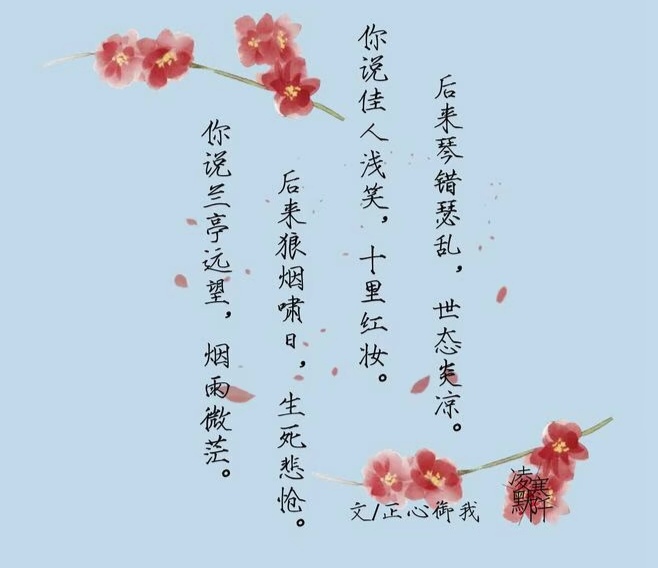 你说兰亭远望，烟雨微茫。
后来狼烟啸日，生死悲怆。
你说佳人浅笑，十里红妆。
后来琴错瑟乱，世态炎凉。
文/正心御我
凌